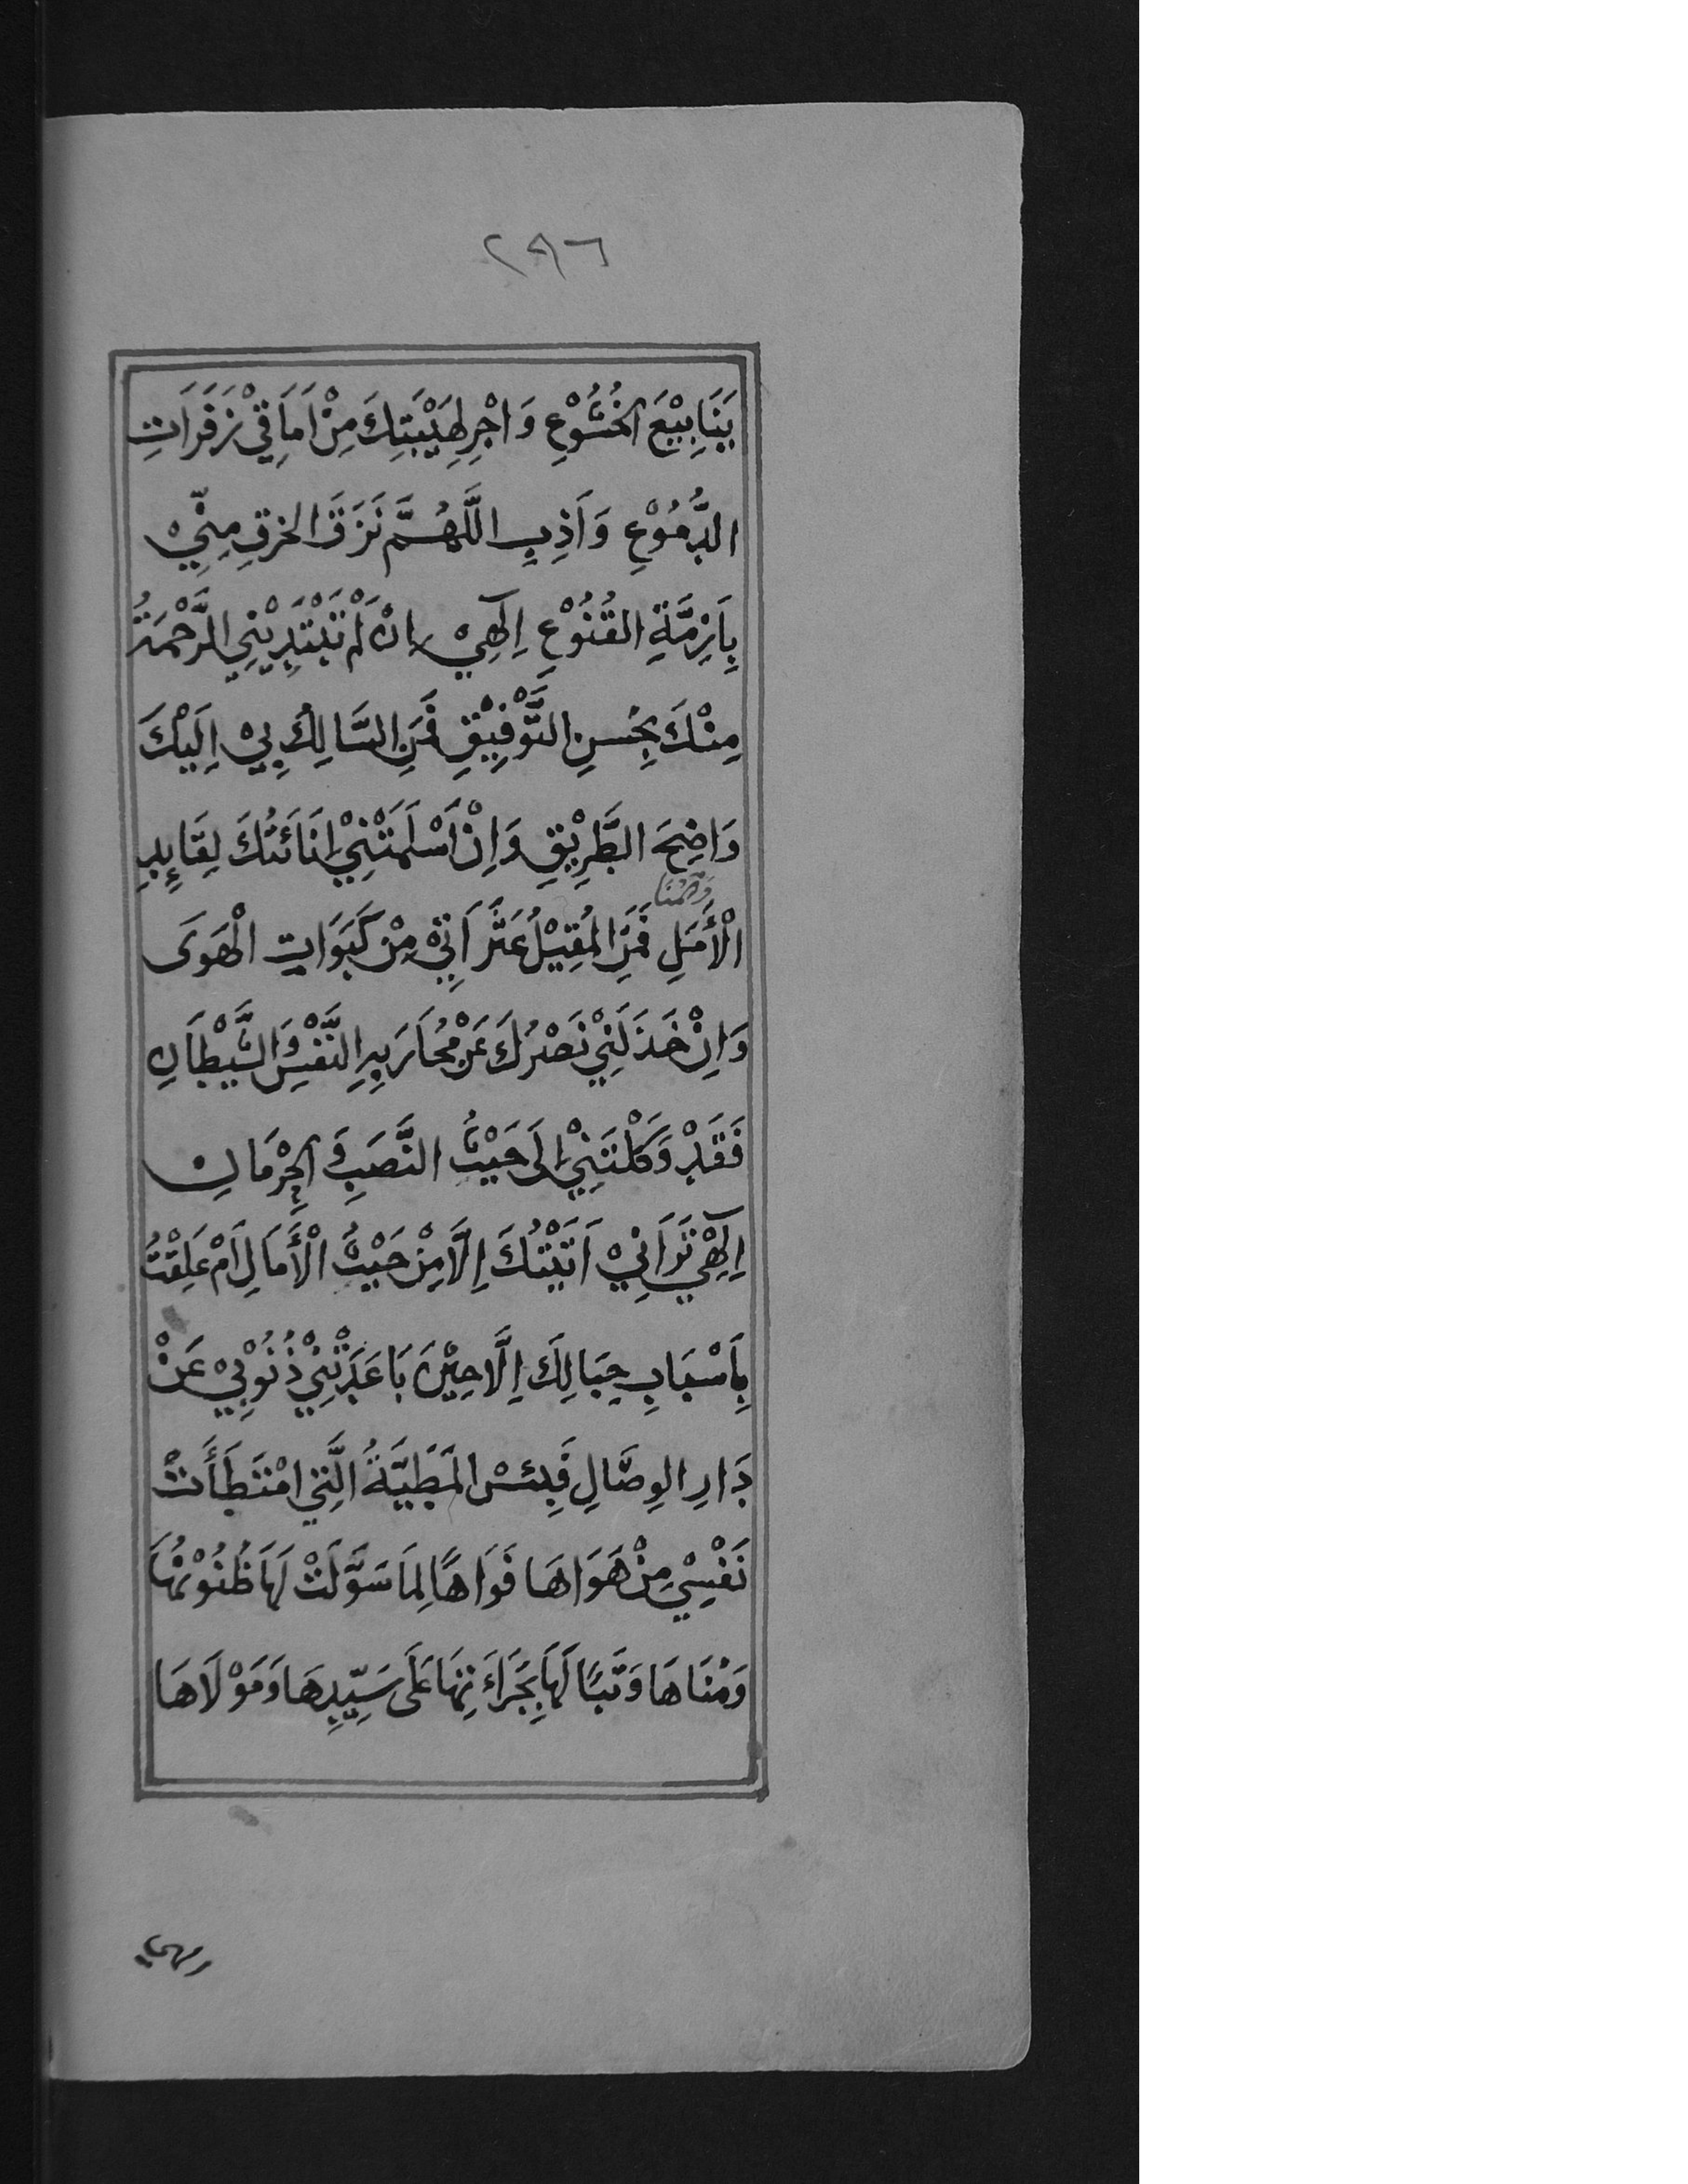 ٢٩٦
يَنَابِيْعَ الخُشُوْعِ وَاجْرِ لِهَيْبَتِكَ مِنْ اَمَاقِيْ زَفَرَاتِ
الدُّمُوْعِ وَاَذِبِ اللَّهُمَّ نَزَقَ الخرقِ مِنِّيْ
بِاَزِمَّةِ القُنُوْعِ اِلٰهِيْ اِنْ لَمْ تَبْتَدِيْنِي الرَّحْمَةُ
مِنْكَ بِحُسنِ التَّوْفِيْقِ فَمَنِ السَّالِكُ بِيْ اِلَيْكَ
وَاضِحَ الطَّرِيْقِ وَاِنْ اَسْلَمَتْنِيْ اِنَائَتُكَ لِقَايِدِ
الْأَمَلِ وَالْمُنَا فَمَنِ المُقِيْلُ عَثَرَاتِيْ مِنْ كَبَوَاتِ الْهَوَى
وَاِنْ خَذَلَنِيْ نَصْرُكَ عَنْ مُحَارَبِةِ النَّفْسِ وَالشَّيْطَانِ
فَقَدْ وَكَلْتَنِيْ اِلَى حَيْثُ النَّصَبِ وَ الحِرْمَانِ
اِلٰهِيْ تَرَانِيْ اَتَيْتُكَ اِلَّا مِنْ حَيْثُ الْأَمَالِ اَمْ عَلِقْتُ
بِاَسْبَابِ حِبَالِكَ اِلَّا حِيْنَ بَاعَدَتْنِيْ ذُنُوْبِيْ عَنْ
دَارِ الوِصَّالِ فَبِئسْ المَطِيَّةُ الَّتِي امْتَطَأَتْ
نَفْسِيْ مِنْ هَوَاهَا فَوَاهًا لِمَا سَوَّلَتْ لَهَا ظُنُوْنُهَا
وَمُنَاهَا وَتَبًا لَهَا بِجَرَاءَتِهَا عَلَى سَيِّدِهَا وَمَوْلَاهَا